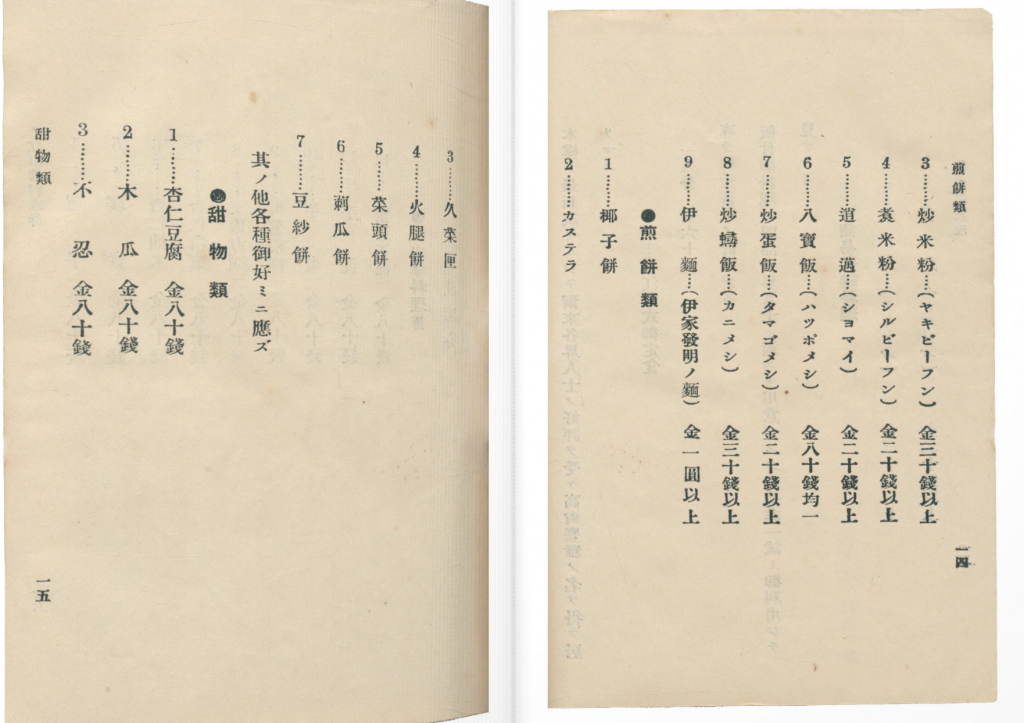 煎餅類
3………炒米粉……(ヤキビーフン) 金三十錢以上
4………煑米粉……(シルビーフン) 金二十錢以上
5………逍邁……(シヨマイ) 金二十錢以上
6………八寶飯……(ハツポメシ) 金八十錢均一
7………炒蛋飯……(タマゴメシ) 金二十錢以上
8………炒蟳飯……(カニメシ) 金三十錢以上
9………伊麵……(伊家發明ノ麵) 金一圓以上
●煎餅類
1………椰子餅
2………カステラ
一四
3………久菜匣
4………火腿餅
5………菜頭餅
6………莿瓜餅
7………豆紗餅
其ノ他各種御好ミニ應ズ
●甜物類
1………杏仁豆腐 金八十錢
2………木瓜 金八十錢
3………不忍 金八十錢
甜物類
一五